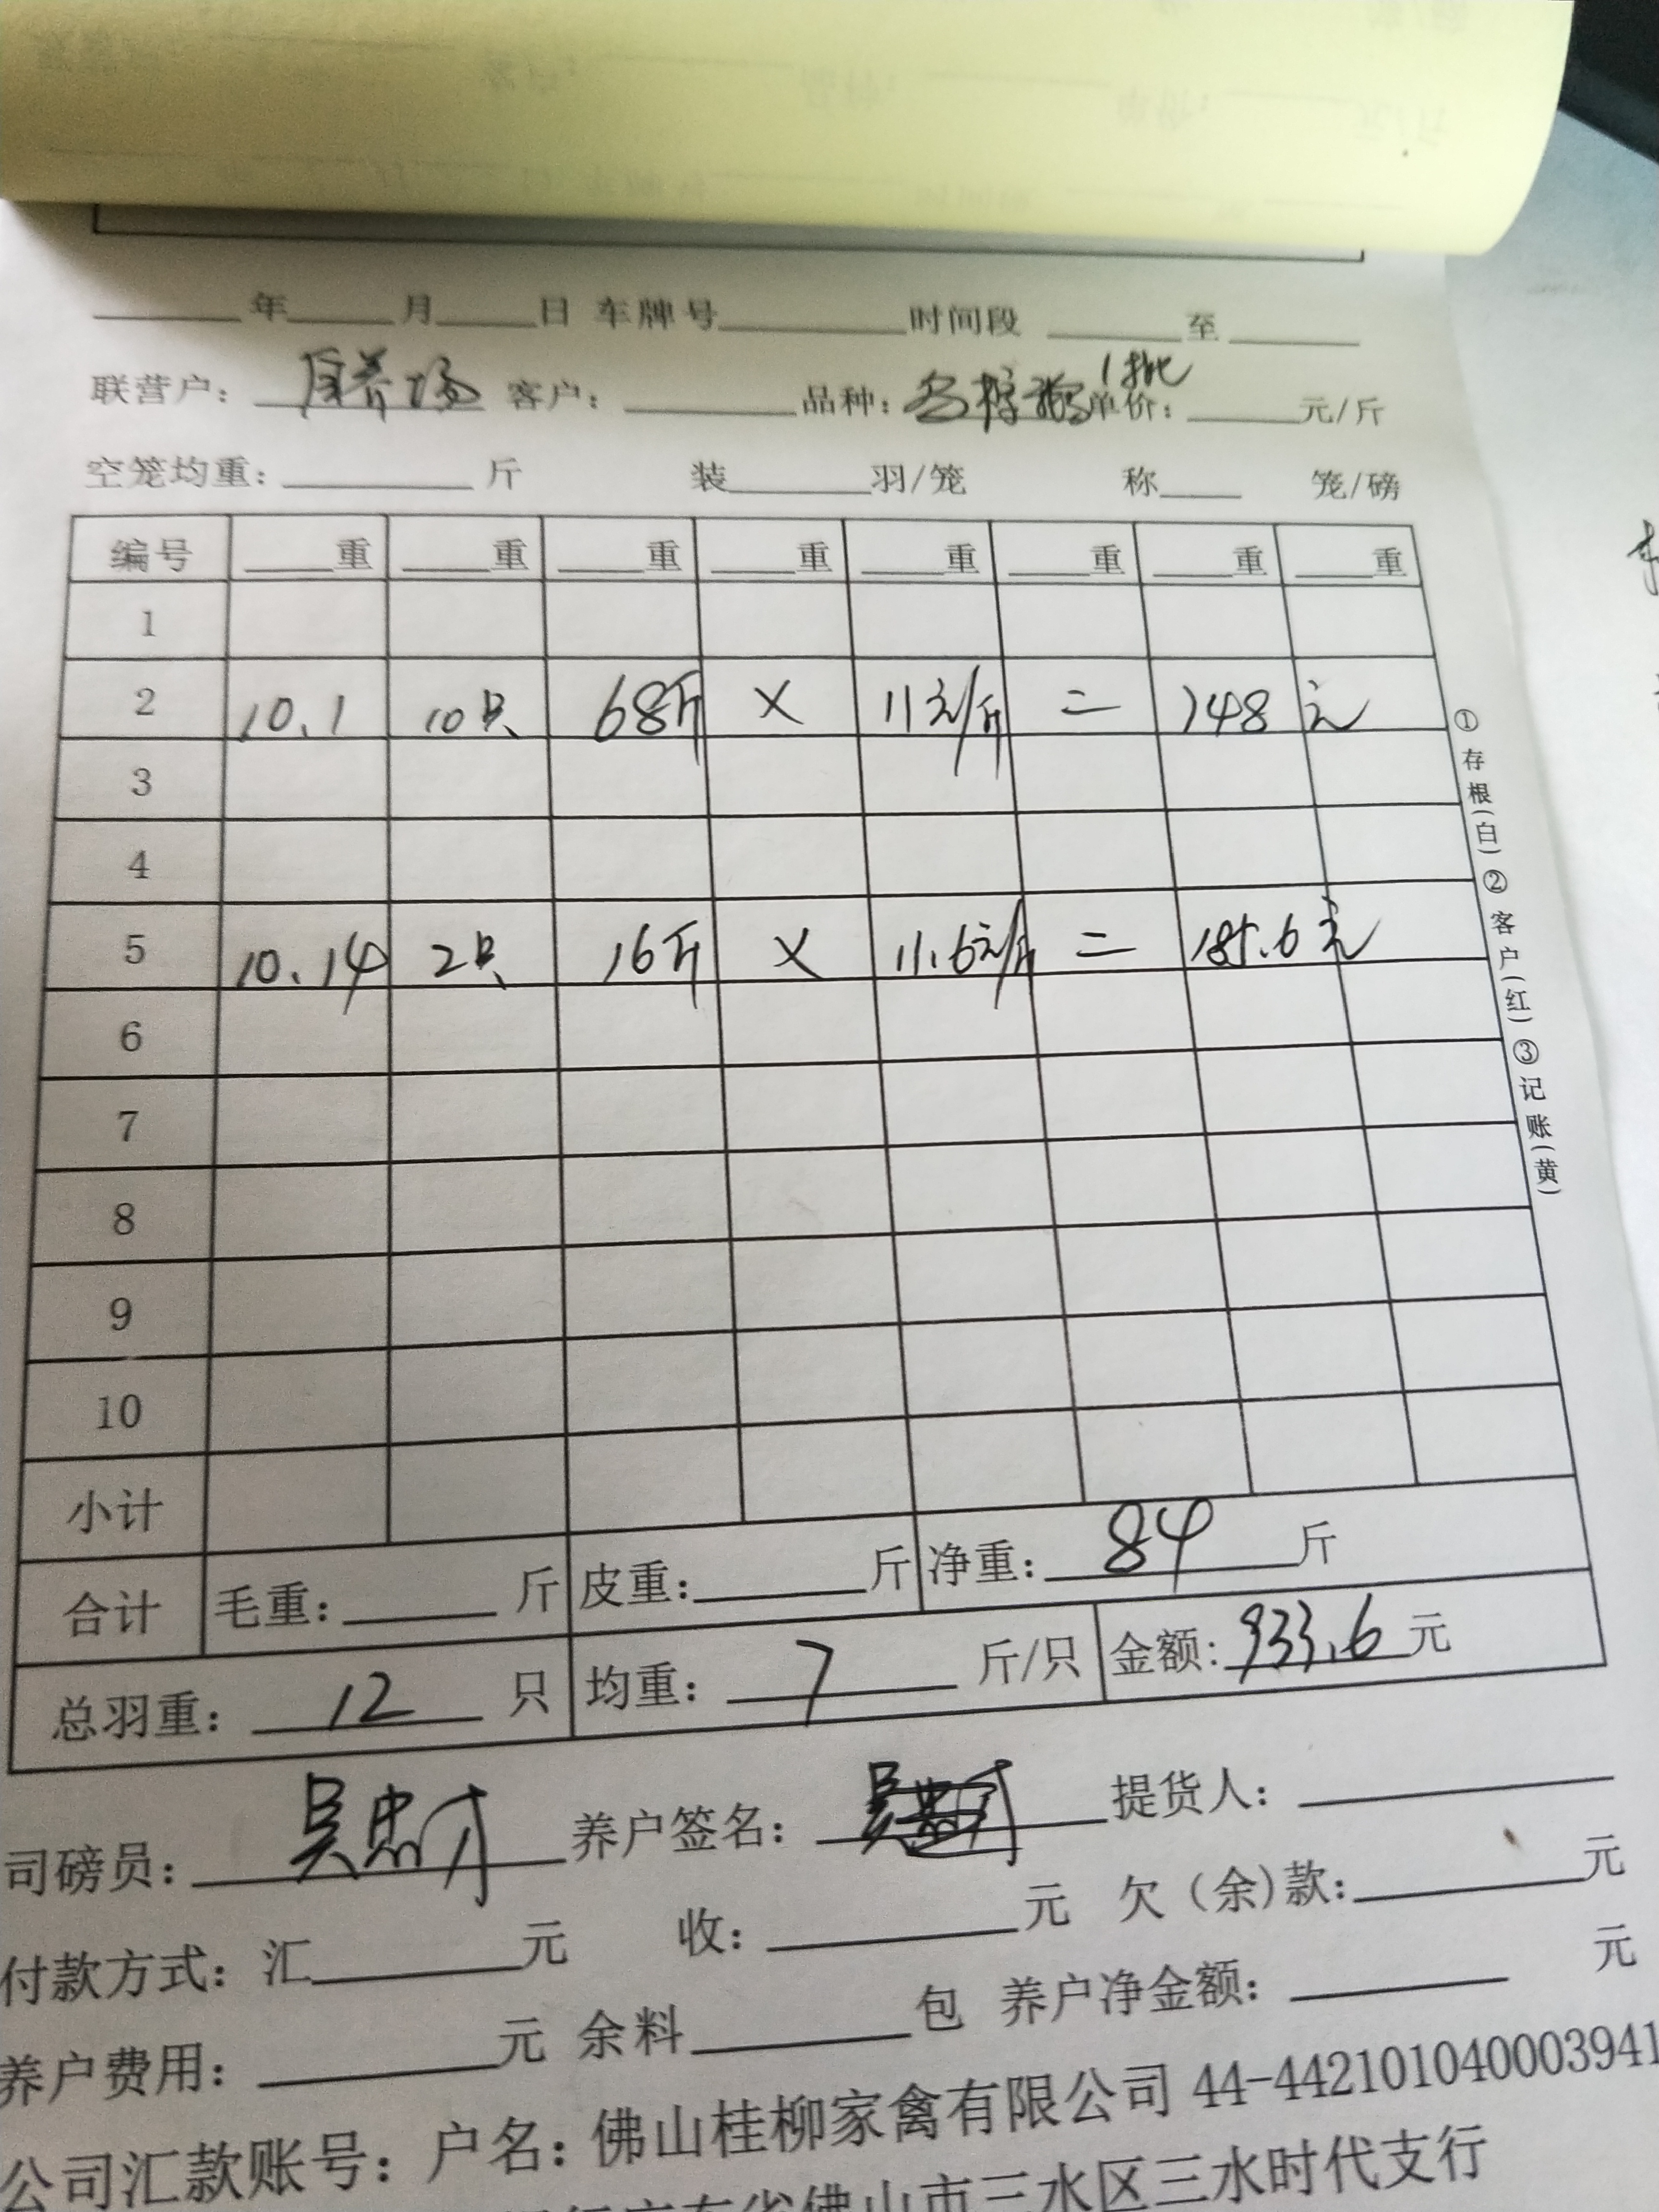 年 月 日 车牌号 时间段 至
联营户： 养场 客户： 品种： 1批 单价： 元/斤
空笼均重： 斤 装 羽/笼 称 笼/磅
编号 重 重 重 重 重 重 重 重
1
2 10.1 10只 68斤 × 11元/斤 = 748 元
3
4
5 10.14 2只 16斤 × 11.6元/斤 = 185.6元
6
7
8
9
10
小计
合计 毛重： 斤 皮重： 斤 净重： 84 斤
总羽重： 12 只 均重： 7 斤/只 金额: 933.6 元
司磅员： 吴忠才 养户签名： 提货人：
付款方式：汇 元 收： 元 欠（余)款： 元
养户费用： 元 余料 包 养户净金额： 元
公司汇款账号：户名：佛山桂柳家禽有限公司 44-442101040003941
佛山市三水区三水时代支行
①存根(白)②客户(红)③记账(黄)